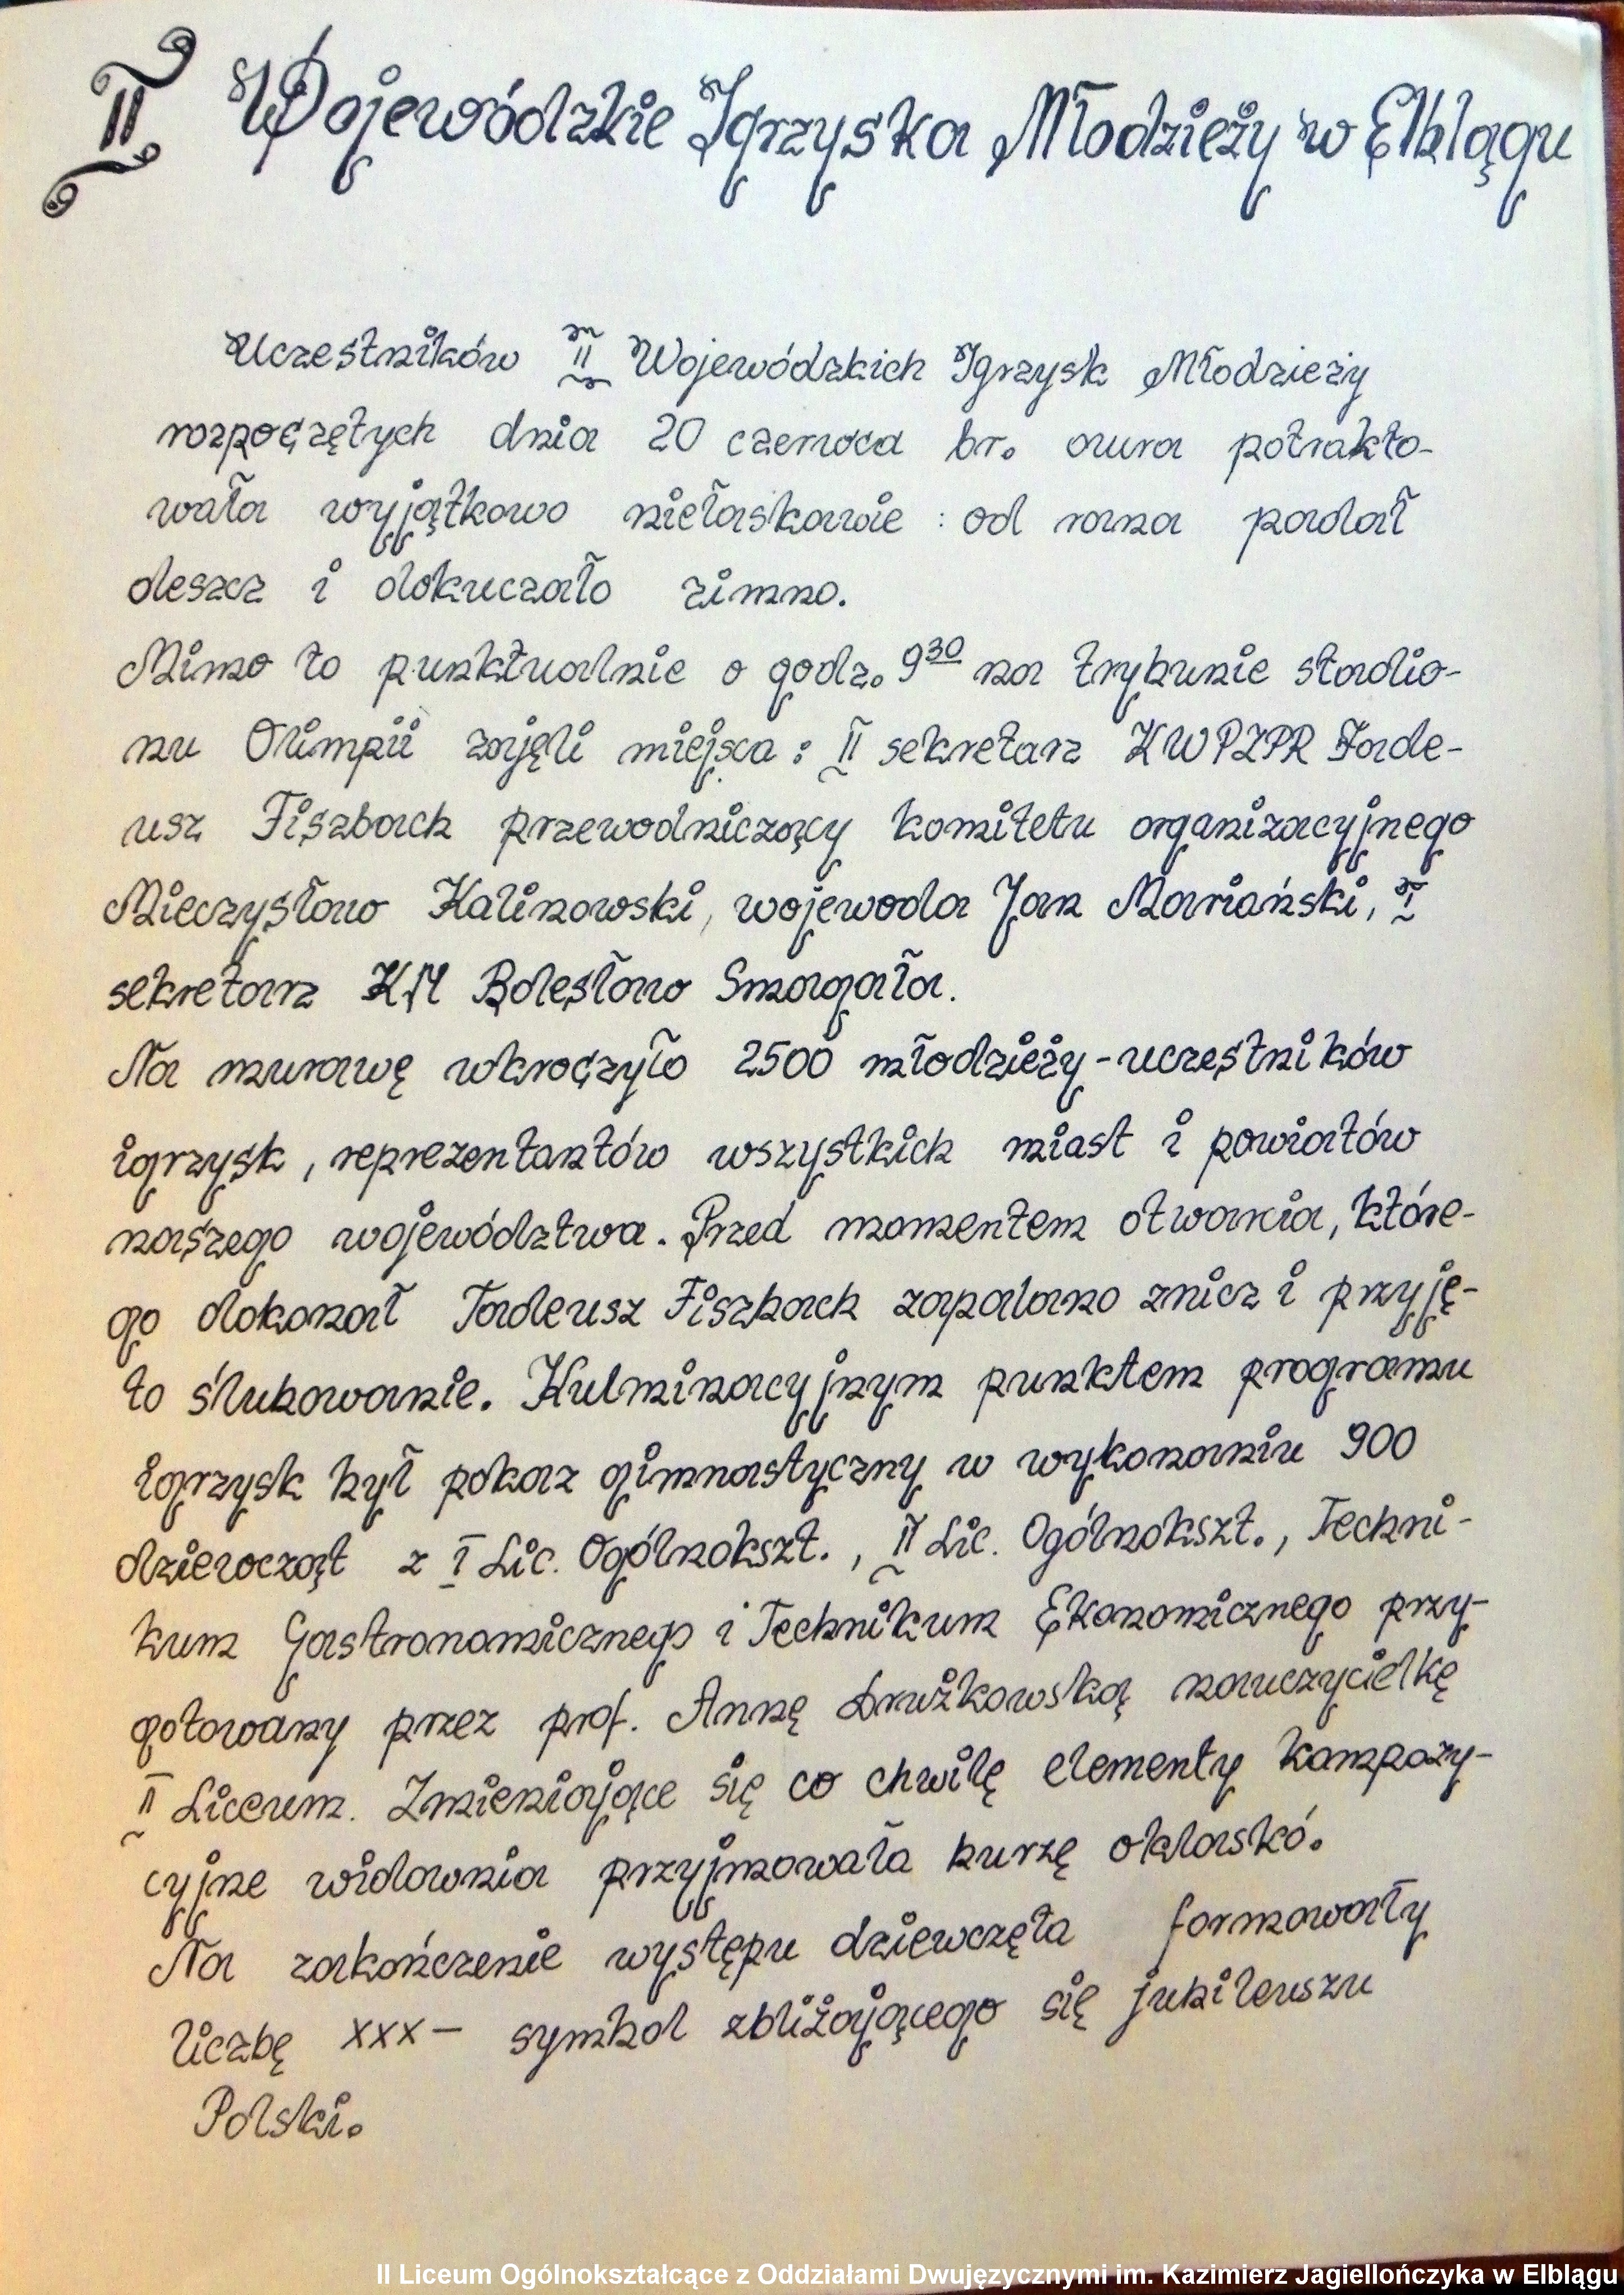 II Wojewódzkie Igrzyska Młodzieży w Elblągu
Uczestników II Wojewódzkich Igrzysk Młodzieży
rozpoczętych dnia 20 czerwca br. aura potrakto-
wała wyjątkowo niełaskawie : od rana padał
deszcz i dokuczało zimno.
Mimo to punktualnie o godz. 9 30 na trybunie stadio-
nu Olimpii zajęli miejsca : II sekretarz KWPZPR Tade-
usz Fiszbach przewodniczący komitetu organizacyjnego
Mieczysław Kalinowski, wojewoda Jan Mariański, I
sekretarz KM Bolesław Smagała.
Na murawę wkroczyło 2500 młodzieży-uczestników
igrzysk, reprezentantów wszystkich miast i powiatów
naszego województwa. Przed momentem otwarcia, które-
go dokonał Tadeusz Fiszbach zapalano znicz i przyję-
to ślubowanie. Kulminacyjnym punktem programu
igrzysk był pokaz gimnastyczny w wykonaniu 900
dziewcząt z I Lic. Ogólnokszt., II Lic. Ogólnokszt., Techni-
kum Gastronomicznego i Technikum Ekonomicznego przy-
gotowany przez prof. Annę Drużkowską nauczycielkę
II Liceum. Zmieniające się co chwilę elementy kompozy-
cyjne widownia przyjmowała burzę oklaskó.
Na zakończenie występu dziewczęta formowały
liczbę XXX - symbol zbliżającego się jubileuszu
Polski.
II Liceum Ogólnokształcące z Oddziałami Dwujęzycznymi im. Kazimierz Jagiellończyka w Elblągu